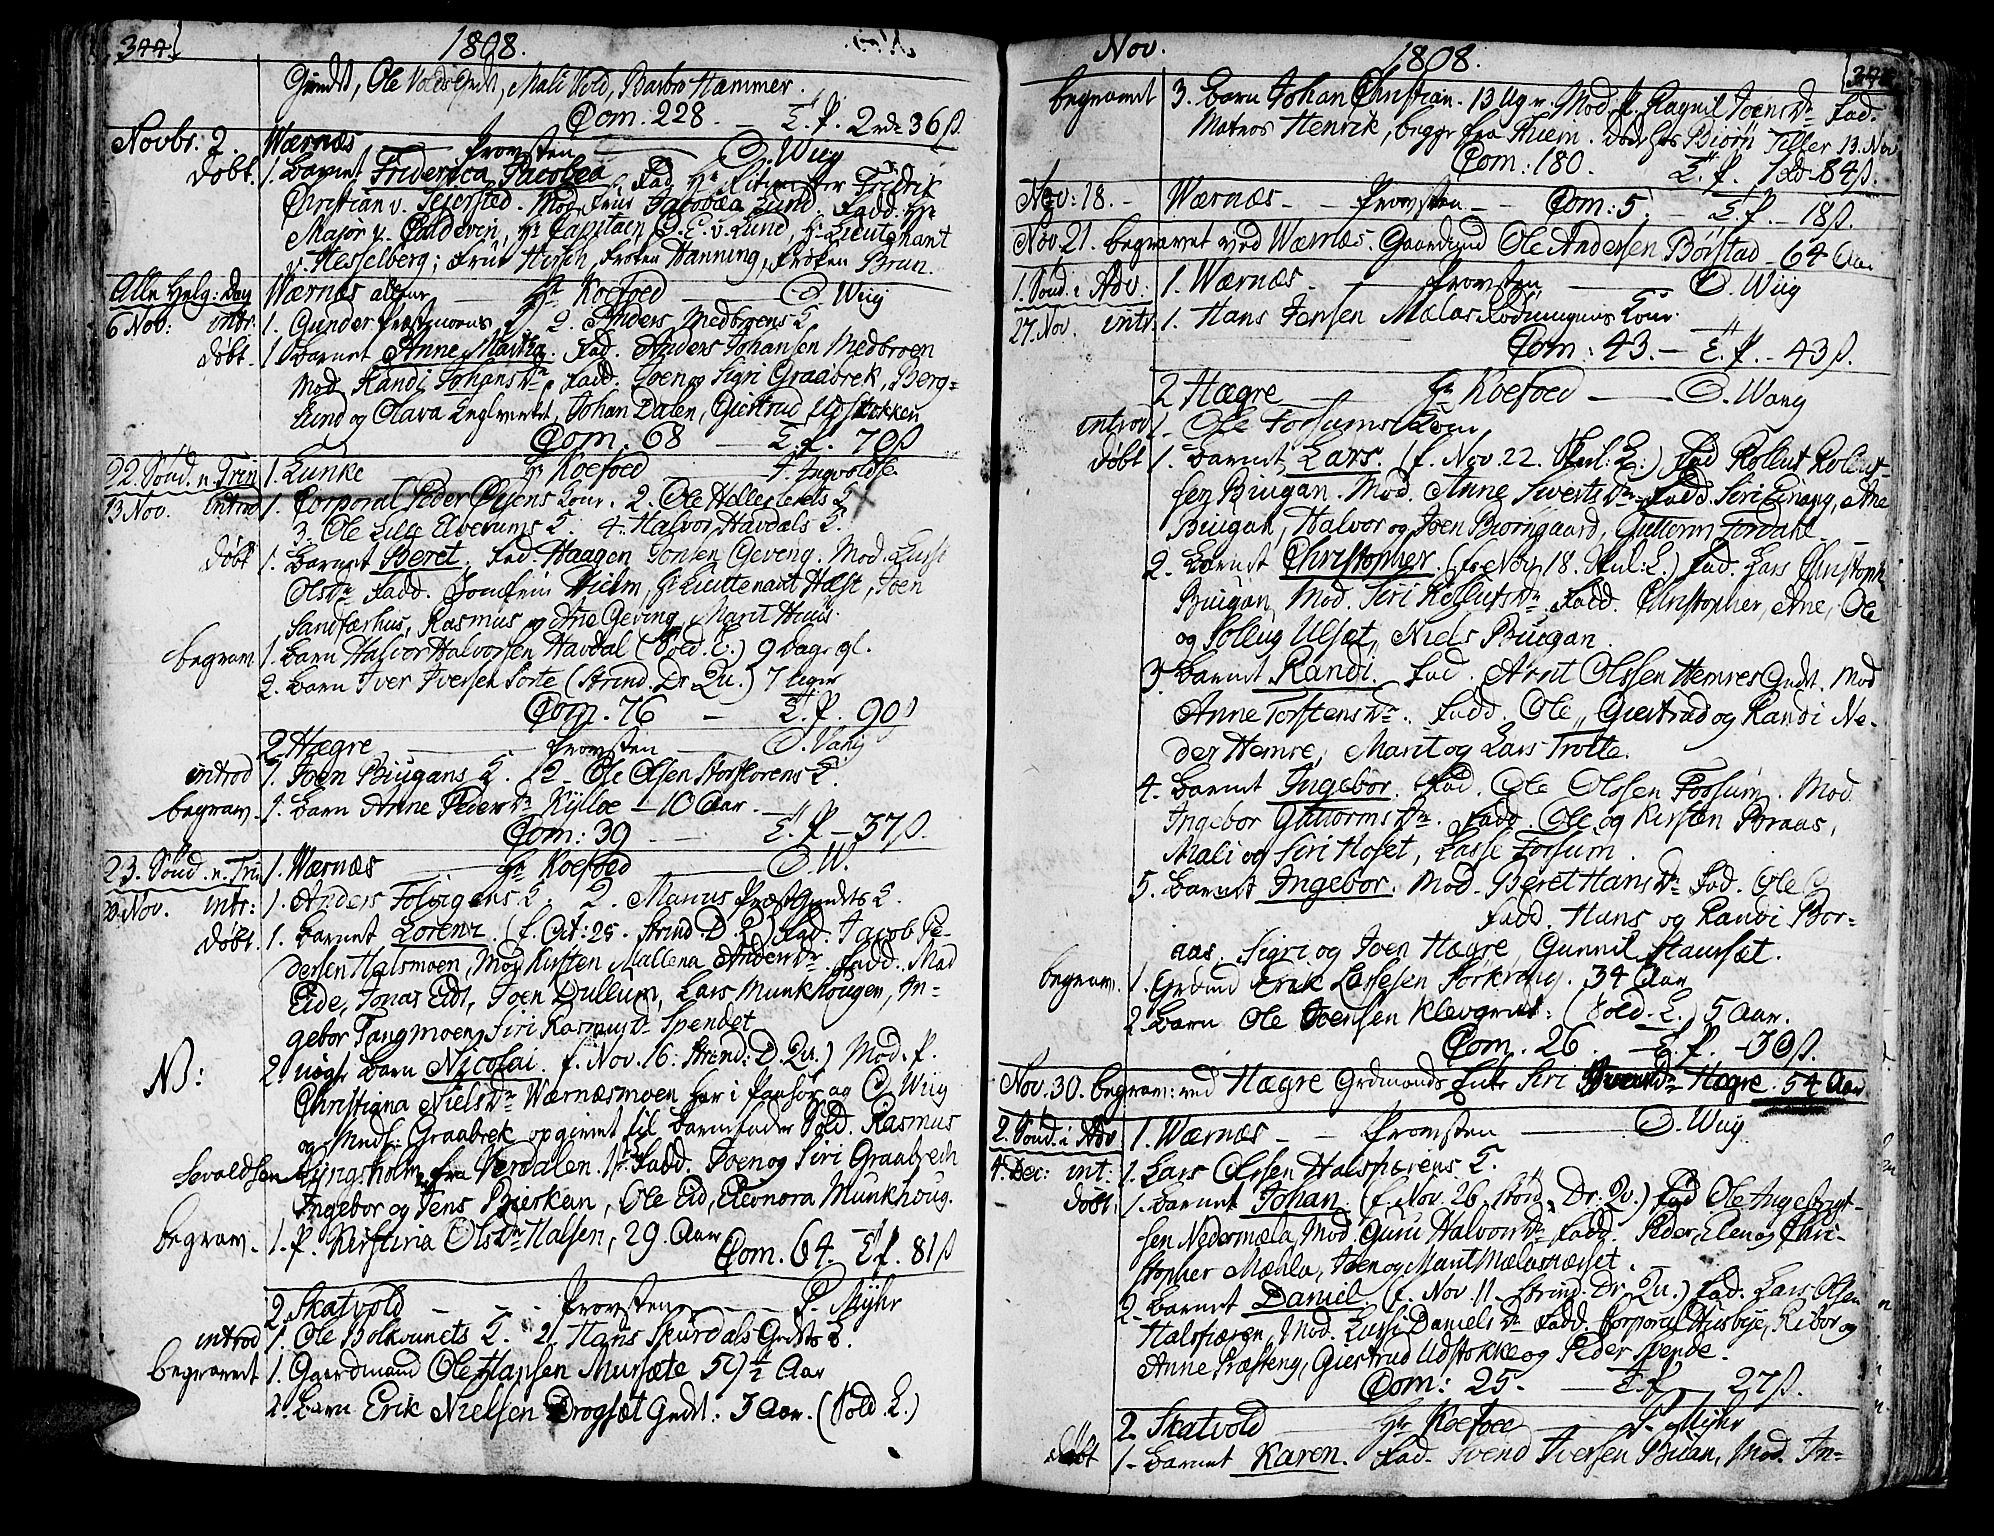 344
1808.
Gundt, Ole Volds Gudt, Mali Vold, Barbro Hammer.
Com. 228. — T. P. 2 rd 36 ß.
Novbr: 2. Wærnæs — Provsten — O. Wuÿ
døbt. 1. Barnet Friderica Jacobea Fad. Hr Ritmester Fridrik
Christian v. Tejersted. Mod. Frue Jacobæa Lund, Fadd. Hr
Major v. Coldevin, Hr Capitain v. Lund, Hr Lieutenant
v. Hesselberg; Frue Hirsch, Frøken Hanning, Frøken Brun.
Alle Helg: Dag Wærnæs — Hr Koefoed — O. Wuÿ
6 Nov: intr. 1. Gunder Præstmoens K. 2. Anders Medbroens K.
døbt. 1 Barnet Anne Martha. Fad. Anders Johansen Medbroen
Mod. Randi Johansdr. Fadd. Joen og Sigri Graabrek, Berg=
lund og Olava Englverket, Johan Dalen, Giertrud Udstokken
Com. 68 — T. P. 70 ß
22. Sønd. n. Trin 1. Lunke Hr Koefoed — J. Ingvoldse
13 Nov. introd 1. Corporal Peder Olsens Konr. 2. Ole Hollerteelds K.
3. Ole Lille Elverums K 4. Halvor Havdals K.
døbt 1. Barnet Beret. Fad. Haagen Jonsen Geveng. Mod. Lussi
Olsdr Fadd. Jomfrue Hielm, Hr Lieutenant Hæst, Joen
Sandfærhus, Rasmus og Ane Geving, Marit Huus.
begrav. 1. Barn Halvor Halvorsen Havdal (Sold. L.) 9 Dage gl.
2. Barn Iver Iversen Sorte (Strind. Dr. Qu.) 7 Uger
Com. 76 — T. P. 90 ß
2 Hægre — Provsten — O. Vang
introd 1. Joen Biugans K. 2. Ole Olsen Storflorens K.
begrav. 1. Barn Anne Pedersdr Kylloe — 10 Aar.
Com: 39 — T. P. — 37 ß.
23. Sønd. n. Tri 1. Wærnæs — Hr Koefoed — O. W.
20 Nov. intr: 1. Anders Folvigens K. 2. Marcus Præst Gundts K.
døbt. 1. Barnet Lorentz. (f. Oct: 25. Strind. D. Q.) Fad. Jacob Pe-
dersen Halsmoen, Mod. Kirsten Mallena Andersdr. Fadd. Mad
Eide, Jonas Eid, Joen Dullum, Lars Munkhougen, In=
gebor Tangmoen, Siri Rasmusdr Spendet
NB: 2. uægte Barn Nicolai. f. Nov. 16: Strind: D. Qu.) Mod. P.
Christiana Nielsdr Wærnæsmoen her i Paahør ag O. Wuÿ
og Graabrek opgivet til Barnefader Sold. Rasmus
Sevaldsen Lyngsholm fra Verdalen. Fadd. Joen og Siri Graabrech
Ingebor og Jens Bierkein, Ole Eid, Eleonora Munkhoug.
begrav. 1. P. Kirstina Olsdr Halsen, 29 Aar
Com. 64. T. P. 81 ß
2. Skatvold — Provsten — P. Mÿhr
introd 1. Ole Bolkvunets K. 2. Hans Skurdals Gndts K.
begravet 1. Gaardmand Ole Hansen Mursæte 59 1/2 Aar
2. Barn Erik Nielsen Drogsæt Gndt: 3 Aar. (Sold. L.)
Nov. 1808.
begravet 3. Barn Johan Christian. 13 Uger. Mod. P. Ragnil Joensdr Fad.
Matros Henrik, begge fra Thiem. Biørn Tiller 13. Nov
Com: 180. T. P. 1 rd 84 ß.
Nov: 18. — Wærnæs — Provsten — Com: 5. T. P. — 18 ß.
Nov. 21. begravet ved Wærnæs. Gaardmd Ole Andersen Børstad — 64 Aar
1. Sønd. i Adv. 1. Wærnæs — Provsten — O. Wuÿ
27. Nov. intr: 1. Hans Jensen Mælas Konr.
Com: 43. — T. P. — 43 ß.
2 Hægre — Hr Koefoed — O. Wang
introd 1. Ole Forsums Kone
døbt 1. Barnet Lars. (f. Nov. 22. Skul: L.) Fad Rollut Rolluf
sen Biugan. Mod. Anne Siverts dr Fadd. Siri Einang, Ane
Biugan, Halvor og Joen Biorngaard, Guttorm Fordahl
2. Barnet Christopher. (f. Nov. 18. Skul: L.) Fad. Lars Christoph
Biugan, Mod. Siri Rollufsdr. Fadd. Christopher, Ane, Ole
og Solleug Ulsæt, Niels Biugan.
3. Barnet Randi. Fad. Arnt Olssen Hemres Gndt. Mod
Anne Torstensdr. Fadd. Ole, Giertrud og Randi Ne-
der Hemre, Marit og Lars Trotte.
4. Barnet Ingebor. Fad. Ole Olssen Fossum. Mod.
Ingebor Guttormsdr. Fadd. Ole og Kirsten Braas,
Mali og Siri Hoset, Lasse Forsum.
5. Barnet Ingebor. Mod. Beret Hansdr Fad. Ole
Fadd. Hans og Randi Bor-
aas. Sigri og Joen Hægre, Gunnil Staursæt.
begrav. 1. Grdmd Erik Larssen Forkring. 34 Aar
2. Barn Ole Joensen Klevgrdt: (Sold. L.) 5 Aar.
Com. 26. — T. P. — 30 ß.
Nov. 30. begrav: ved Hægre Grdmands Enke Siri Hægre. 54 Aar
2. Sønd. i Adv. 1. Wærnæs — Provsten — O. Wuÿ
4. Dec: int. 1. Lars Olssen Halsfiærens K.
døbt. 1. Barnet Johan. (f. Nov. 26. Størd. Dr. Qu.) Fad Ole Ingebrigt-
sen Nedermæla, Mod. Guru Halvorsdr. Fadd. Peder, Elen og Chri-
stopher Mæhla, Joen og Marit Mælasmæsset.
2. Barnet Daniel (f. Nov. 11. Strind. Dr. Qu.) Fad. Lars Olsen
Halsfiæren, Mod. Lussi Daniels dr Fadd. Corporal Husbye, Ribor og
Anne Præsteng, Giertrud Udstokke og Peder Spende.
Com: 25. — T. P. 27 ß.
2. Skatvold — Hr Koefoed — P. Mÿhr
døbt 1. Barnet Karen. Fad. Svend Iversen Buan, Mod. In-